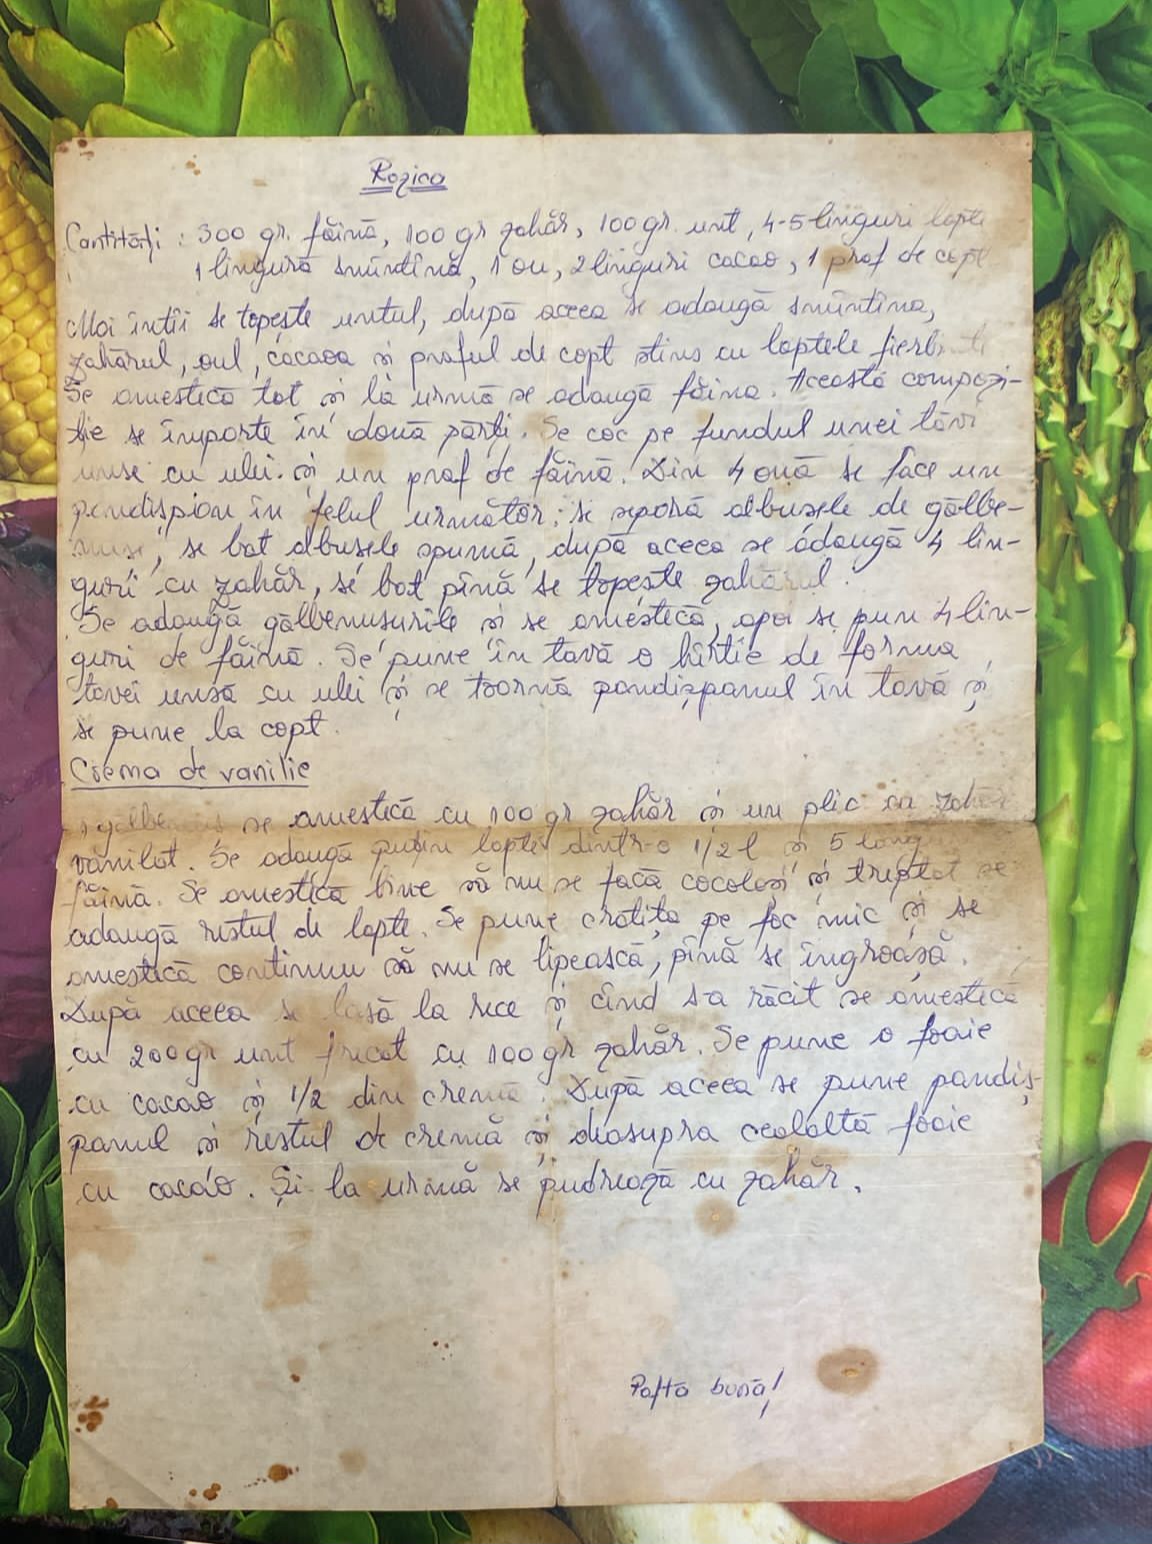 Rozica
Cantități : 300 gr. făină, 100 gr zahăr, 100 gr. unt, 4-5 linguri lapte
1 lingură smîntînă, 1 ou, 2 linguri cacao, 1 praf de copt
Mai întîi se topește untul, după aceea se adaugă smîntîna,
zahărul, oul, cacaoa și praful de copt stins cu laptele fierbinte
Se amestică tot și la urmă se adaugă făina. Această compozi-
ție se împarte în două părți. Se coc pe fundul unei tăvi
unse cu ulei și un praf de făină. Din 4 ouă se face un
pandișpion în felul următor: se separă albușele de gălbe-
se bat albușele spumă, după aceea se adaugă 4 lin-
guri cu zahăr, se bat pînă se topește zahărul.
Se adaugă gălbenușurile și se amestică, apoi se pun 4 lin-
guri de făină. Se pune în tavă o hîrtie de forma
tavei unsă cu ulei și se toarnă pandișpanul în tavă și
se pune la copt.
Crema de vanilie
se amestică cu 100 gr zahăr și un plic cu zahăr
vanilat. Se adaugă puțin lapte dintr-o 1/2 l și 5
făină. Se amestică bine să nu se facă cocoloși și treptat se
adaugă restul de lapte. Se pune cratița pe foc mic și se
amestică continuu să nu se lipească, pînă se îngroașă.
După aceea se lasă la rece și cînd s-a răcit se amestică
cu 200 gr unt frecat cu 100 gr zahăr. Se pune o foaie
cu cacao și 1/2 din cremă. După aceea se pune pandiș-
panul și restul de cremă și deasupra cealaltă foaie
cu cacao. Și la urmă se pudrează cu zahăr.
Poftă bună!